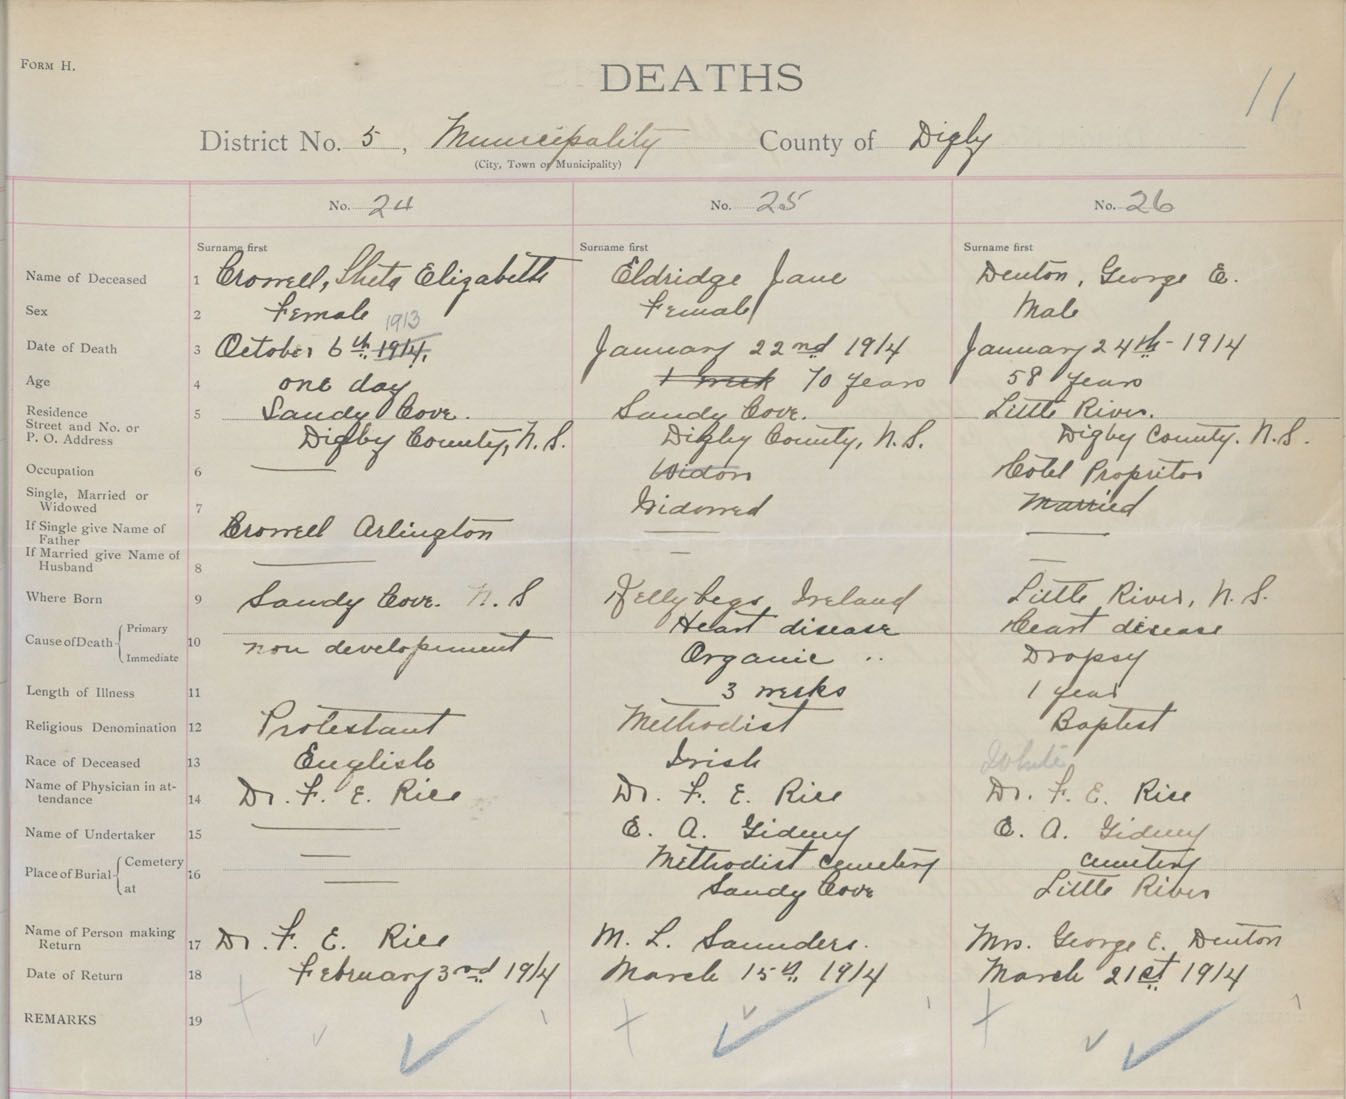 FORM H.
DEATHS
11
District No. 5, Municipality County of Digby
(City, Town or Municipality)
No. 24 No. 25 No. 26
Surname first Surname first Surname first
Name of Deceased 1 Crowell, Elizabeth Eldridge Jane Denton, George E.
Sex 2 Female Female Male
1913
Date of Death 3 October 6th 1914, January 22nd 1914 January 24th - 1914
Age 4 one day 1 week 70 years 58 years
Residence 5 Sandy Cove. Sandy Cove. Little River.
Street and No. or
P. O. Address Digby County, N. S. Digby County, N. S. Digby County. N. S.
Occupation 6 — Widow Hotel Propritor
Single, Married or
Widowed 7 Widowed Married
If Single give Name of
Father Crowell Arlington — —
If Married give Name of
Husband 8 — — —
Where Born 9 Sandy Cove. N. S Ireland Little River, N. S.
Cause of Death Primary 10 non development Heart disease Heart disease
Immediate Organic .. Dropsy
Length of Illness 11 3 weeks 1 year
Religious Denomination 12 Protestant Methodist Baptist
Race of Deceased 13 English Irish White
Name of Physician in at-
tendance 14 Dr. F. E. Rice Dr. F. E. Rice Dr. F. E. Rice
Name of Undertaker 15 — E. A. Gidney E. A. Gidney
Place of Burial Cemetery 16 — Methodist cemetery cemetery
at — Sandy Cove Little River
Name of Person making
Return 17 Dr. F. E. Rice M. L. Saunders. Mrs. George E. Denton
Date of Return 18 February 3nd 1914 March 15th 1914 March 21st 1914
REMARKS 19